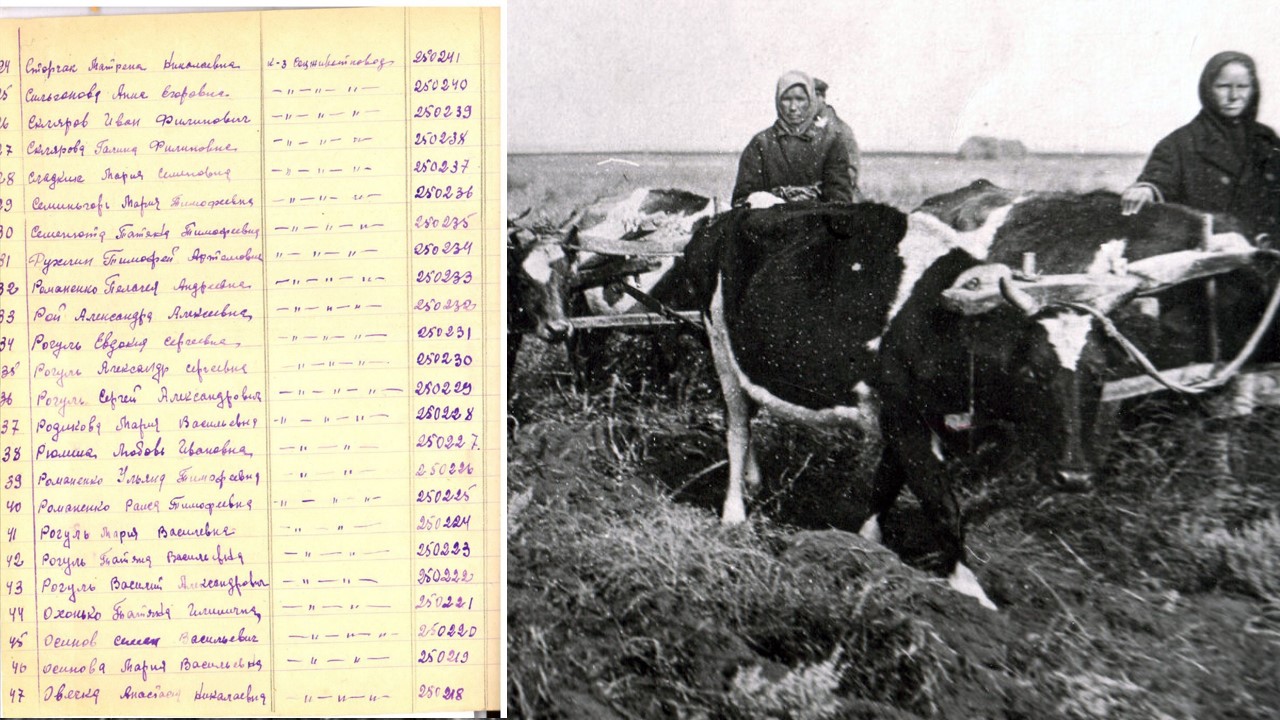 24 Сторчак Матрена Николаевна к-з Соцживотновод 250241
25 Сильванова Анна Егоровна -"-"-"- 250240
26 Скляров Иван Филипович -"-"-"- 250239
27 Склярова Галина Филиповна -"-"-"- 250238
28 Сладкина Мария Семеновна -"-"-"- 250237
29 Семиньгорь Мария Тимофеевна -"-"-"- 250236
30 Татьяна Тимофеевна -"-"-"- 250235
31 Тимофей Артемович -"-"-"- 250234
32 Романенко Пелагея Андреевна -"-"-"- 250233
33 Рой Александра Алексеевна -"-"-"- 250232
34 Рогуль Евдокия Сергеевна -"-"-"- 250231
35 Рогуль Александр Сергеевна -"-"-"- 250230
36 Рогуль Сергей Александрович -"-"-"- 250229
37 Родикова Мария Васильевна -"-"-"- 250228
38 Рюмина Любовь Ивановна -"-"- 250227.
39 Романенко Ульяна Тимофеевна -"-"- 250226
40 Романенко Раиса Тимофеевна -"-"-"- 250225
41 Рогуль Мария Василевна -"-"- 250224
42 Рогуль Татьяна Василевна -"-"- 250223
43 Рогуль Василий Александрович -"-"- 250222
44 Охонько Татьяна Илинична -"-"- 250221
45 Осинов семен Васильевич -"-"-"- 250220
46 Осинова Мария Васильевна -"-"-"- 250219
47 Овечка Анастасия Николаевна -"-"-"- 250218